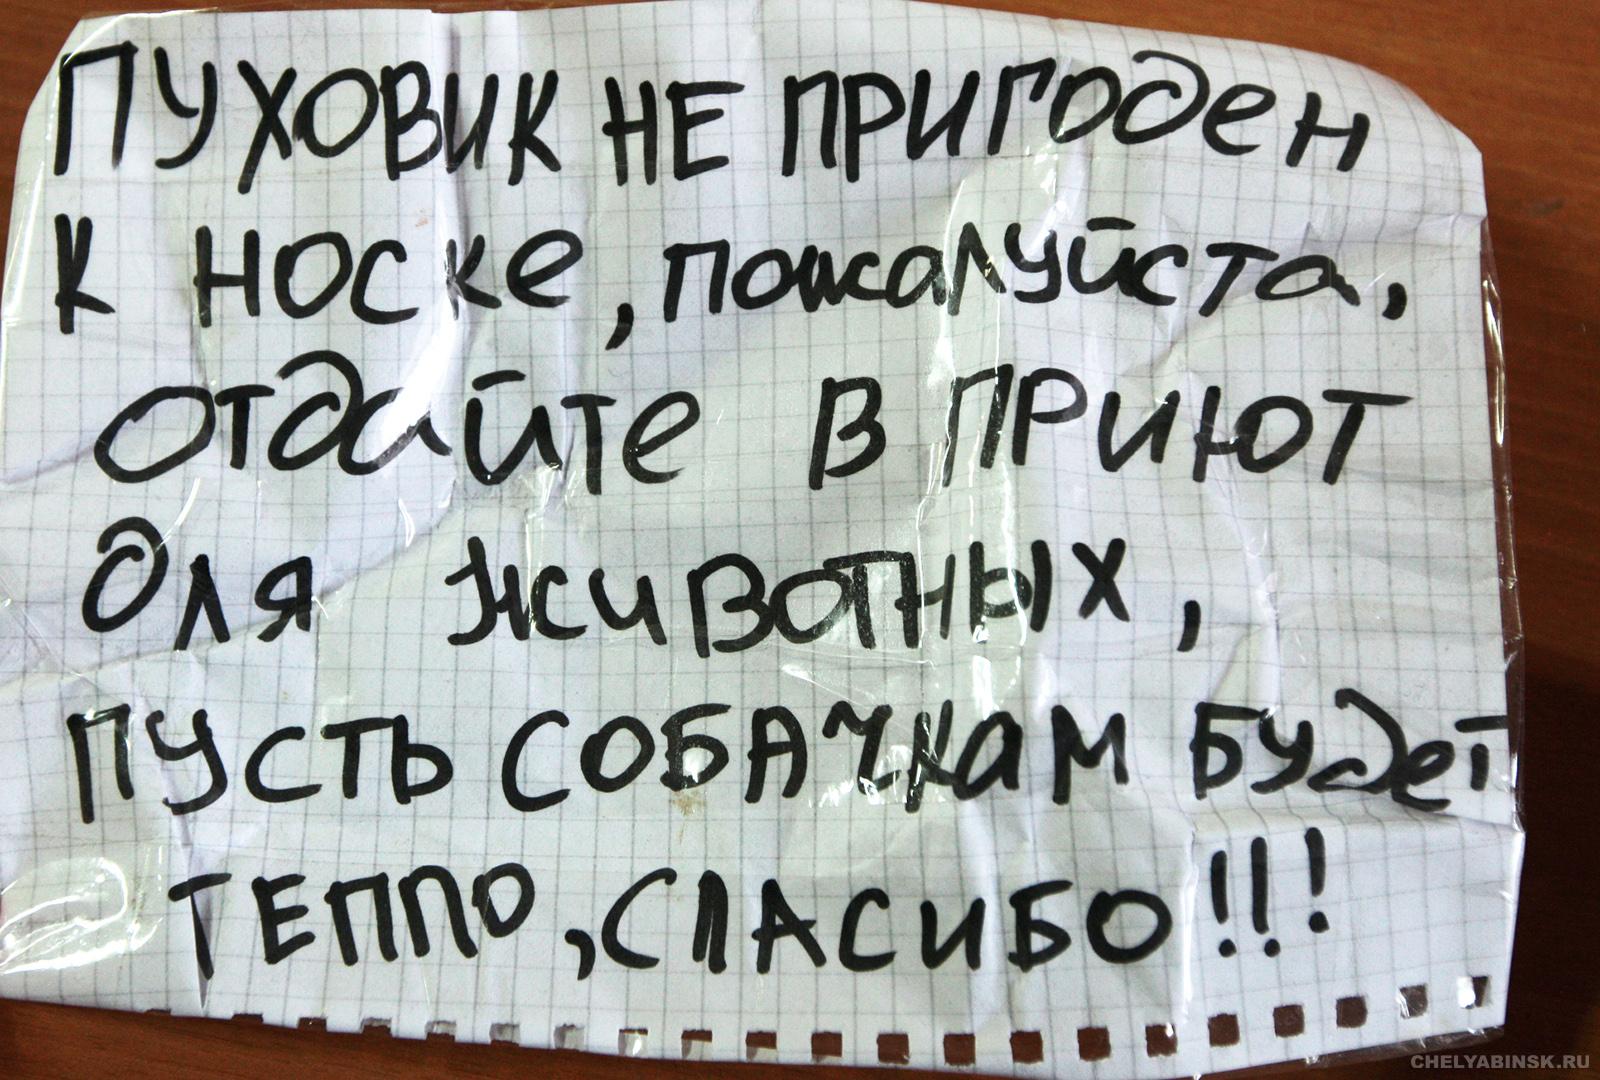 ПУХОВИК НЕ ПРИГОДЕН
К НОСКЕ, пожалуйста,
отдайте В ПРИЮТ
для животных,
ПУСТЬ СОБАЧКАМ БУДЕТ
ТЕПЛО, СПАСИБО!!!
CHELYABINSK.RU